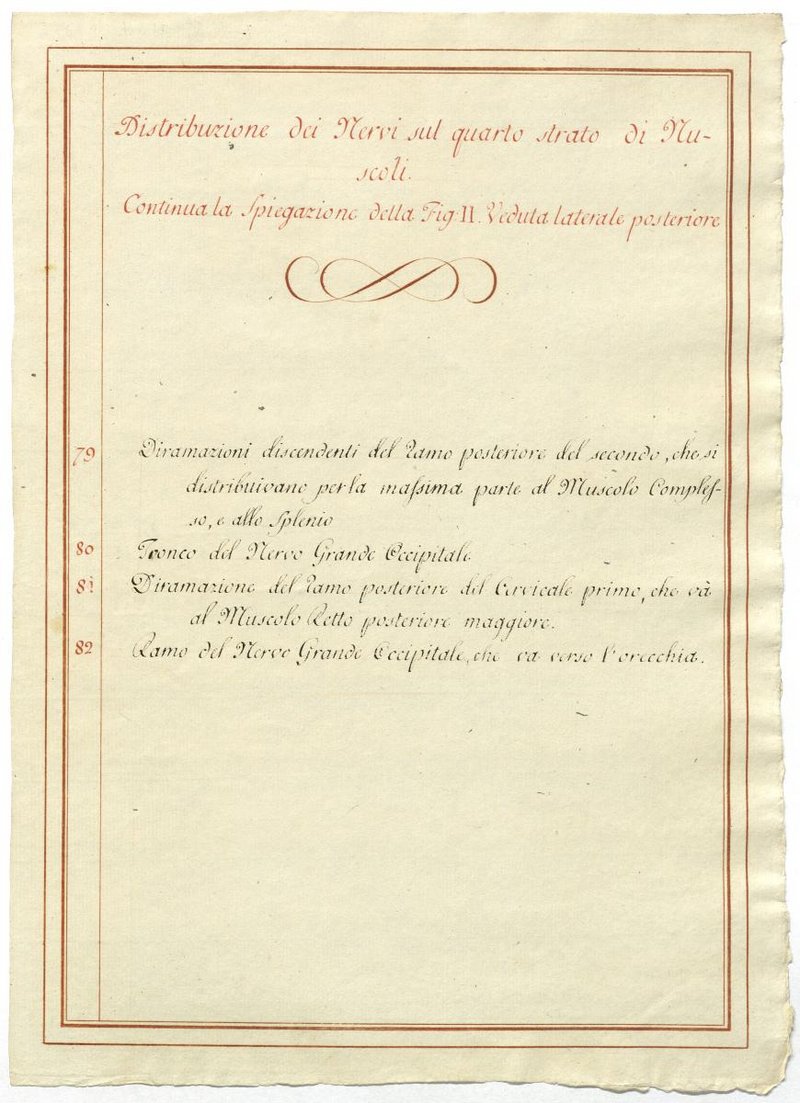 Distribuzione dei Nervi sul quarto strato di Mu-
scoli.
Continua la Spiegazione della Fig: II. Veduta laterale posteriore
79 Diramazioni discendenti del Ramo posteriore del secondo, che si
distribuivano per la maſsima parte al Muscolo Compleſ-
so, e allo Splenio
80 Tronco del Nervo Grande Occipitale
81 Diramazione del Ramo posteriore del Cervicale primo, che và
al Muscolo Retto posteriore maggiore.
82 Ramo del Nervo Grande Occipitale, che va verso l'orecchia.